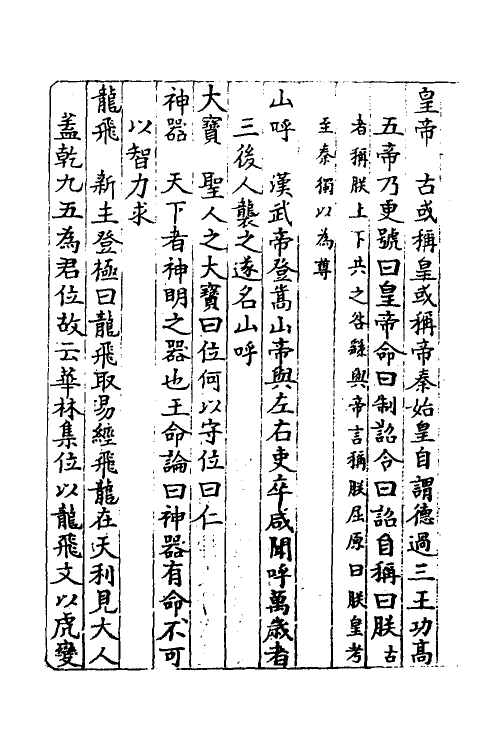 皇帝　古或稱皇或稱帝秦始皇自謂德過三王功髙
五帝乃更號曰皇帝命曰制詔令曰詔自稱曰朕古
者稱朕上下共之咎繇與帝言稱朕屈原曰朕皇考
至秦獨以為尊
山呼　漢武帝登嵩山帝與左右吏卒咸聞呼萬歲者
三後人襲之遂名山呼
大寶　聖人之大寶曰位何以守位曰仁
神器　天下者神明之器也王命論曰神器有命不可
以智力求
龍飛　新主登極曰龍飛取易經飛龍在天利見大人
蓋乾九五為君位故云華林集位以龍飛文以虎變